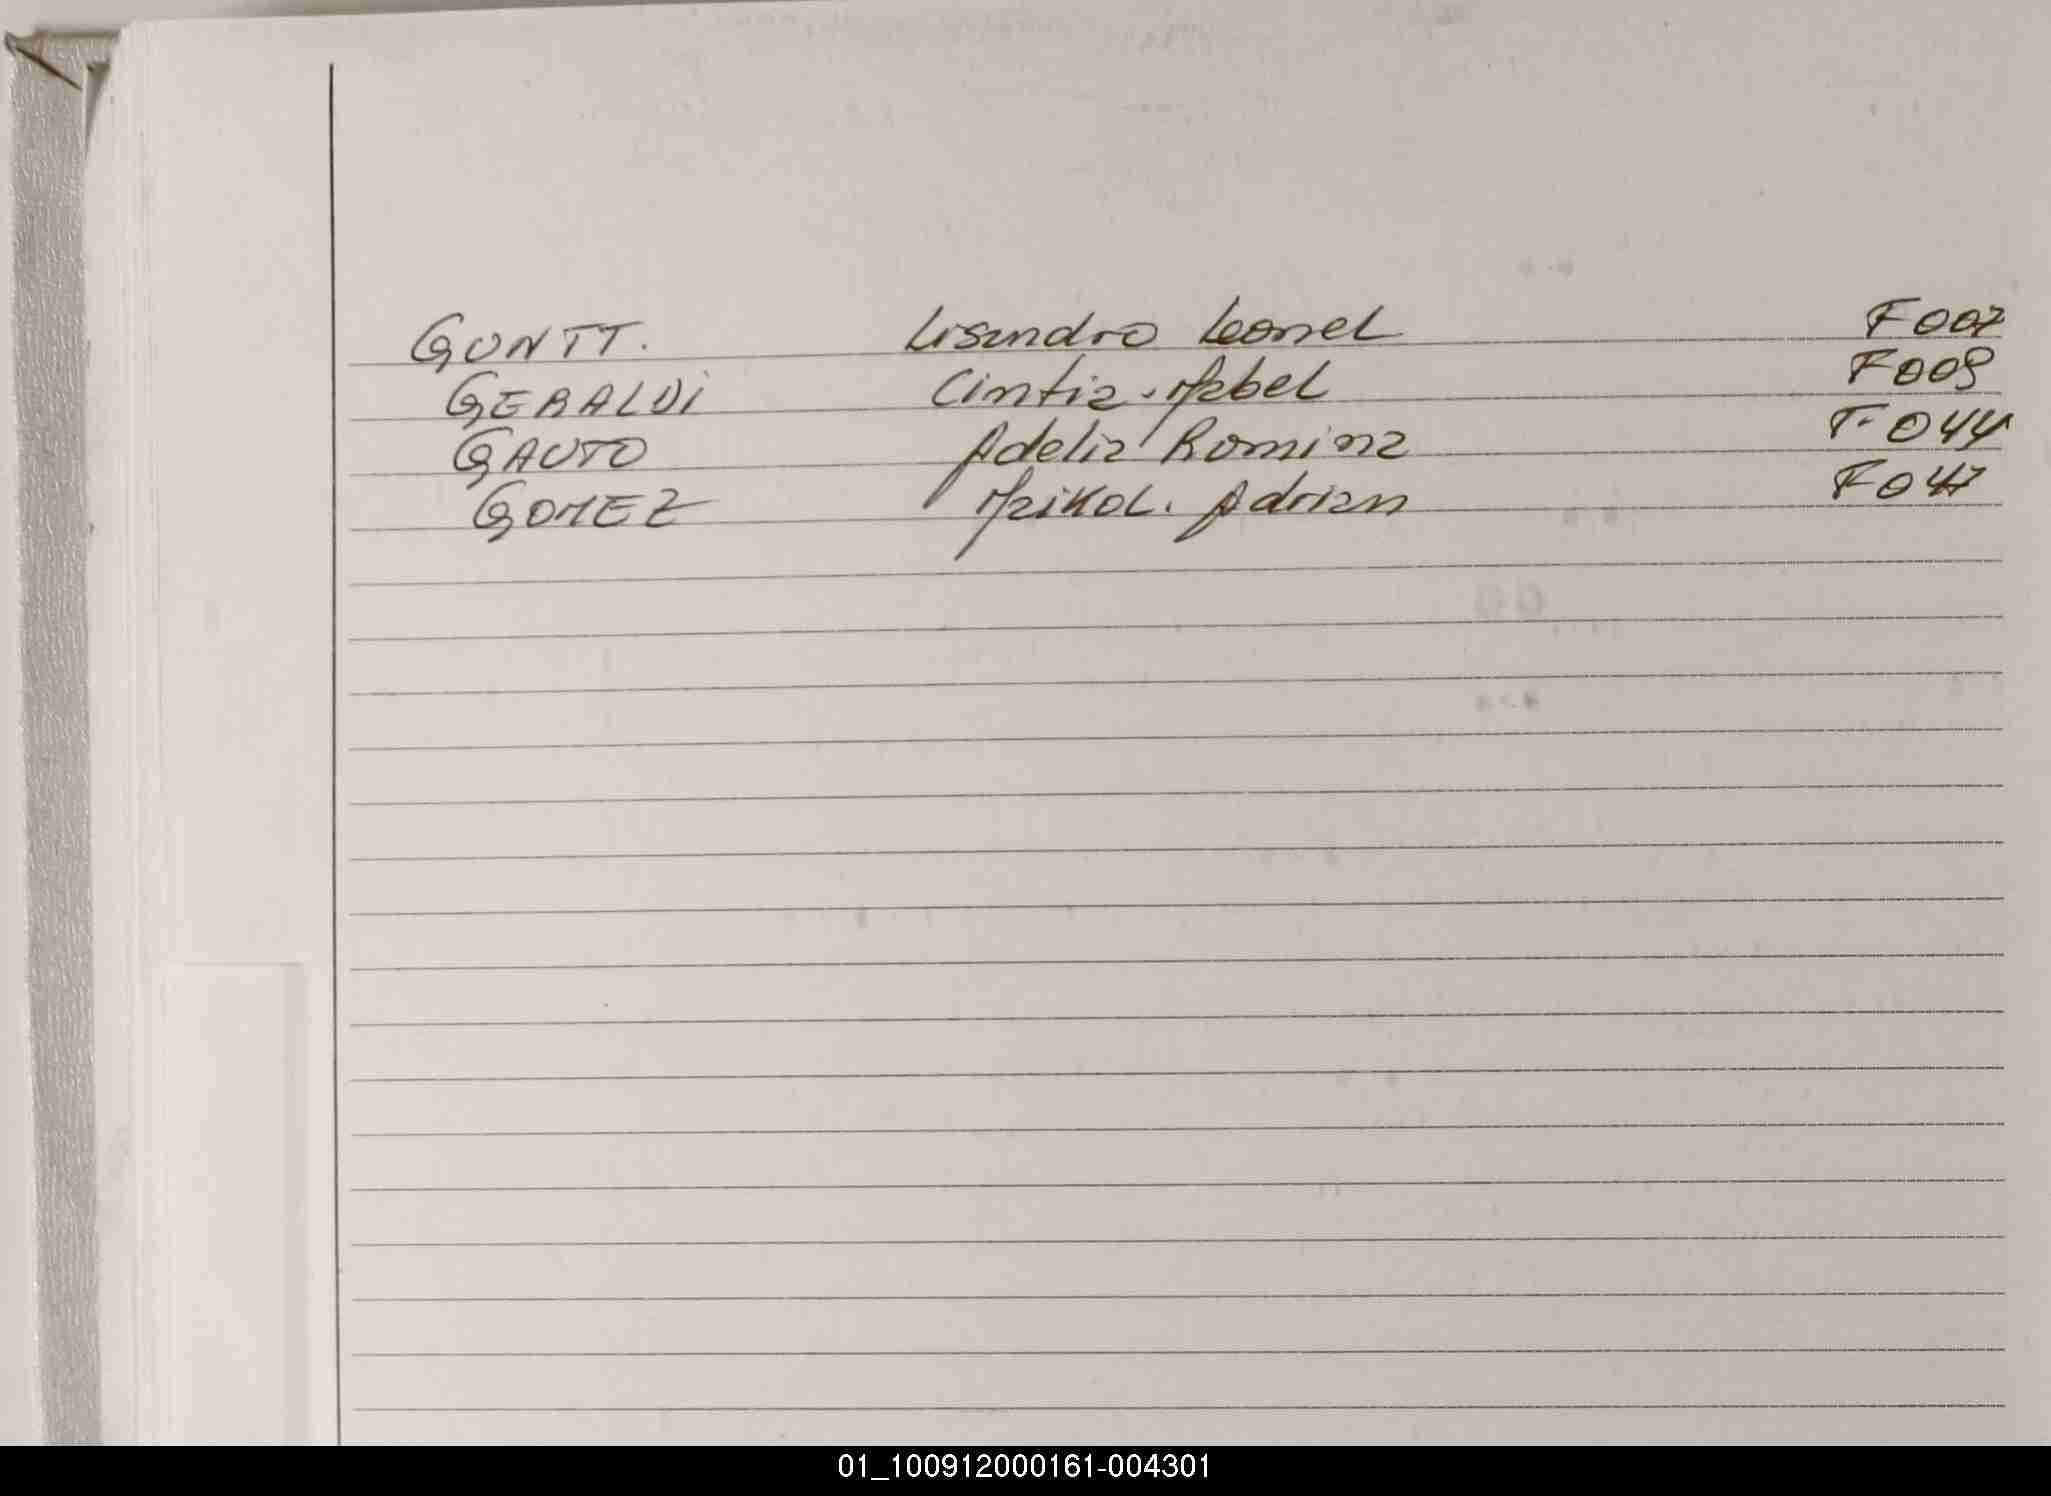 GUNTT. Lisandro Leonel F007
GERALDI Cintia. Mabel F009
GAUTO Adelia Romina F044
GOMEZ Maikol. Adrian F047
01_100912000161-004301